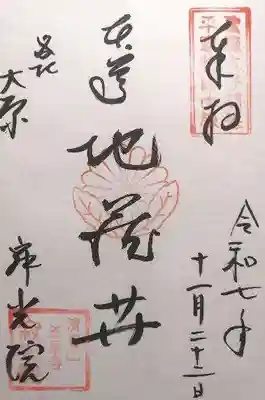 奉拝
令和七年
十一月二十二日
本尊 地蔵𦬇
洛北
大原
寂光院